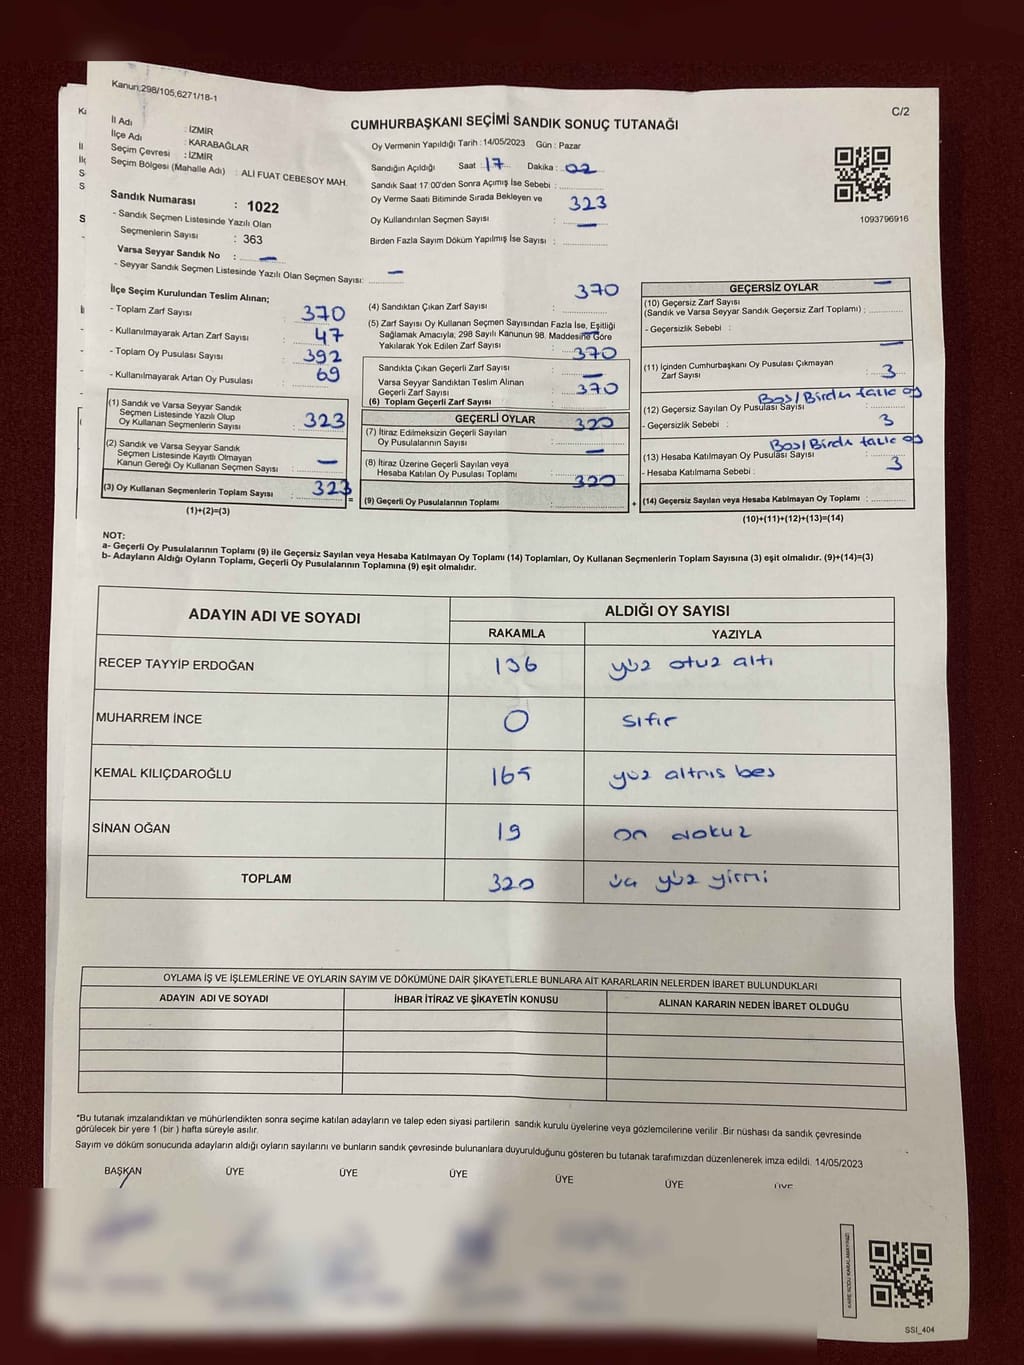 Kanun;298/105,6271/18-1
C/2
CUMHURBAŞKANI SEÇİMİ SANDIK SONUÇ TUTANAĞI
İl Adı : İZMİR
İlçe Adı : KARABAĞLAR
Seçim Çevresi : İZMİR
Seçim Bölgesi (Mahalle Adı) : ALİ FUAT CEBESOY MAH.
Sandık Numarası : 1022
- Sandık Seçmen Listesinde Yazılı Olan
Seçmenlerin Sayısı : 363
Varsa Seyyar Sandık No : —
- Seyyar Sandık Seçmen Listesinde Yazılı Olan Seçmen Sayısı: —
Oy Vermenin Yapıldığı Tarih : 14/05/2023 Gün : Pazar
Sandığın Açıldığı Saat : 17 Dakika : 02
Sandık Saat 17:00'den Sonra Açımış İse Sebebi :
Oy Verme Saati Bitiminde Sırada Bekleyen ve 323
Oy Kullandırılan Seçmen Sayısı : —
Birden Fazla Sayım Döküm Yapılmış İse Sayısı :
1093796916
İlçe Seçim Kurulundan Teslim Alınan;
- Toplam Zarf Sayısı : 370
- Kullanılmayarak Artan Zarf Sayısı : 47
- Toplam Oy Pusulası Sayısı : 392
- Kullanılmayarak Artan Oy Pusulası : 69
(1) Sandık ve Varsa Seyyar Sandık
Seçmen Listesinde Yazılı Olup
Oy Kullanan Seçmenlerin Sayısı : 323
(2) Sandık ve Varsa Seyyar Sandık
Seçmen Listesinde Kayıtlı Olmayan
Kanun Gereği Oy Kullanan Seçmen Sayısı : —
(3) Oy Kullanan Seçmenlerin Toplam Sayısı : 323
(1)+(2)=(3)
370
(4) Sandıktan Çıkan Zarf Sayısı :
(5) Zarf Sayısı Oy Kullanan Seçmen Sayısından Fazla İse, Eşitliği
Sağlamak Amacıyla, 298 Sayılı Kanunun 98. Maddesine Göre —
Yakılarak Yok Edilen Zarf Sayısı : 370
Sandıkta Çıkan Geçerli Zarf Sayısı : —
Varsa Seyyar Sandıktan Teslim Alınan
Geçerli Zarf Sayısı : 370
(6) Toplam Geçerli Zarf Sayısı :
GEÇERLİ OYLAR 320
(7) İtiraz Edilmeksizin Geçerli Sayılan
Oy Pusulalarının Sayısı : —
(8) İtiraz Üzerine Geçerli Sayılan veya
Hesaba Katılan Oy Pusulası Toplamı : 320
= (9) Geçerli Oy Pusulalarının Toplamı :
GEÇERSİZ OYLAR —
(10) Geçersiz Zarf Sayısı
(Sandık ve Varsa Seyyar Sandık Geçersiz Zarf Toplamı) :
- Geçersizlik Sebebi :
—
(11) İçinden Cumhurbaşkanı Oy Pusulası Çıkmayan
Zarf Sayısı : 3
Boş/Birden fazla oy
(12) Geçersiz Sayılan Oy Pusulası Sayısı :
- Geçersizlik Sebebi : 3
Boş/Birden fazla oy
(13) Hesaba Katılmayan Oy Pusulası Sayısı :
- Hesaba Katılmama Sebebi : 3
+ (14) Geçersiz Sayılan veya Hesaba Katılmayan Oy Toplamı :
(10)+(11)+(12)+(13)=(14)
NOT:
a- Geçerli Oy Pusulalarının Toplamı (9) ile Geçersiz Sayılan veya Hesaba Katılmayan Oy Toplamı (14) Toplamları, Oy Kullanan Seçmenlerin Toplam Sayısına (3) eşit olmalıdır. (9)+(14)=(3)
b- Adayların Aldığı Oyların Toplamı, Geçerli Oy Pusulalarının Toplamına (9) eşit olmalıdır.
ADAYIN ADI VE SOYADI ALDIĞI OY SAYISI
RAKAMLA YAZIYLA
RECEP TAYYİP ERDOĞAN 136 yüz otuz altı
MUHARREM İNCE 0 sıfır
KEMAL KILIÇDAROĞLU 165 yüz altmış beş
SİNAN OĞAN 19 on dokuz
TOPLAM 320 üç yüz yirmi
OYLAMA İŞ VE İŞLEMLERİNE VE OYLARIN SAYIM VE DÖKÜMÜNE DAİR ŞİKAYETLERLE BUNLARA AİT KARARLARIN NELERDEN İBARET BULUNDUKLARI
ADAYIN ADI VE SOYADI İHBAR İTİRAZ VE ŞİKAYETİN KONUSU ALINAN KARARIN NEDEN İBARET OLDUĞU
*Bu tutanak imzalandıktan ve mühürlendikten sonra seçime katılan adayların ve talep eden siyasi partilerin sandık kurulu üyelerine veya gözlemcilerine verilir .Bir nüshası da sandık çevresinde
görülecek bir yere 1 (bir ) hafta süreyle asılır.
Sayım ve döküm sonucunda adayların aldığı oyların sayılarını ve bunların sandık çevresinde bulunanlara duyurulduğunu gösteren bu tutanak tarafımızdan düzenlenerek imza edildi. 14/05/2023
BAŞKAN ÜYE ÜYE ÜYE ÜYE ÜYE ÜYE
KARE KODU KARALAMAYINIZ!
SSI_404